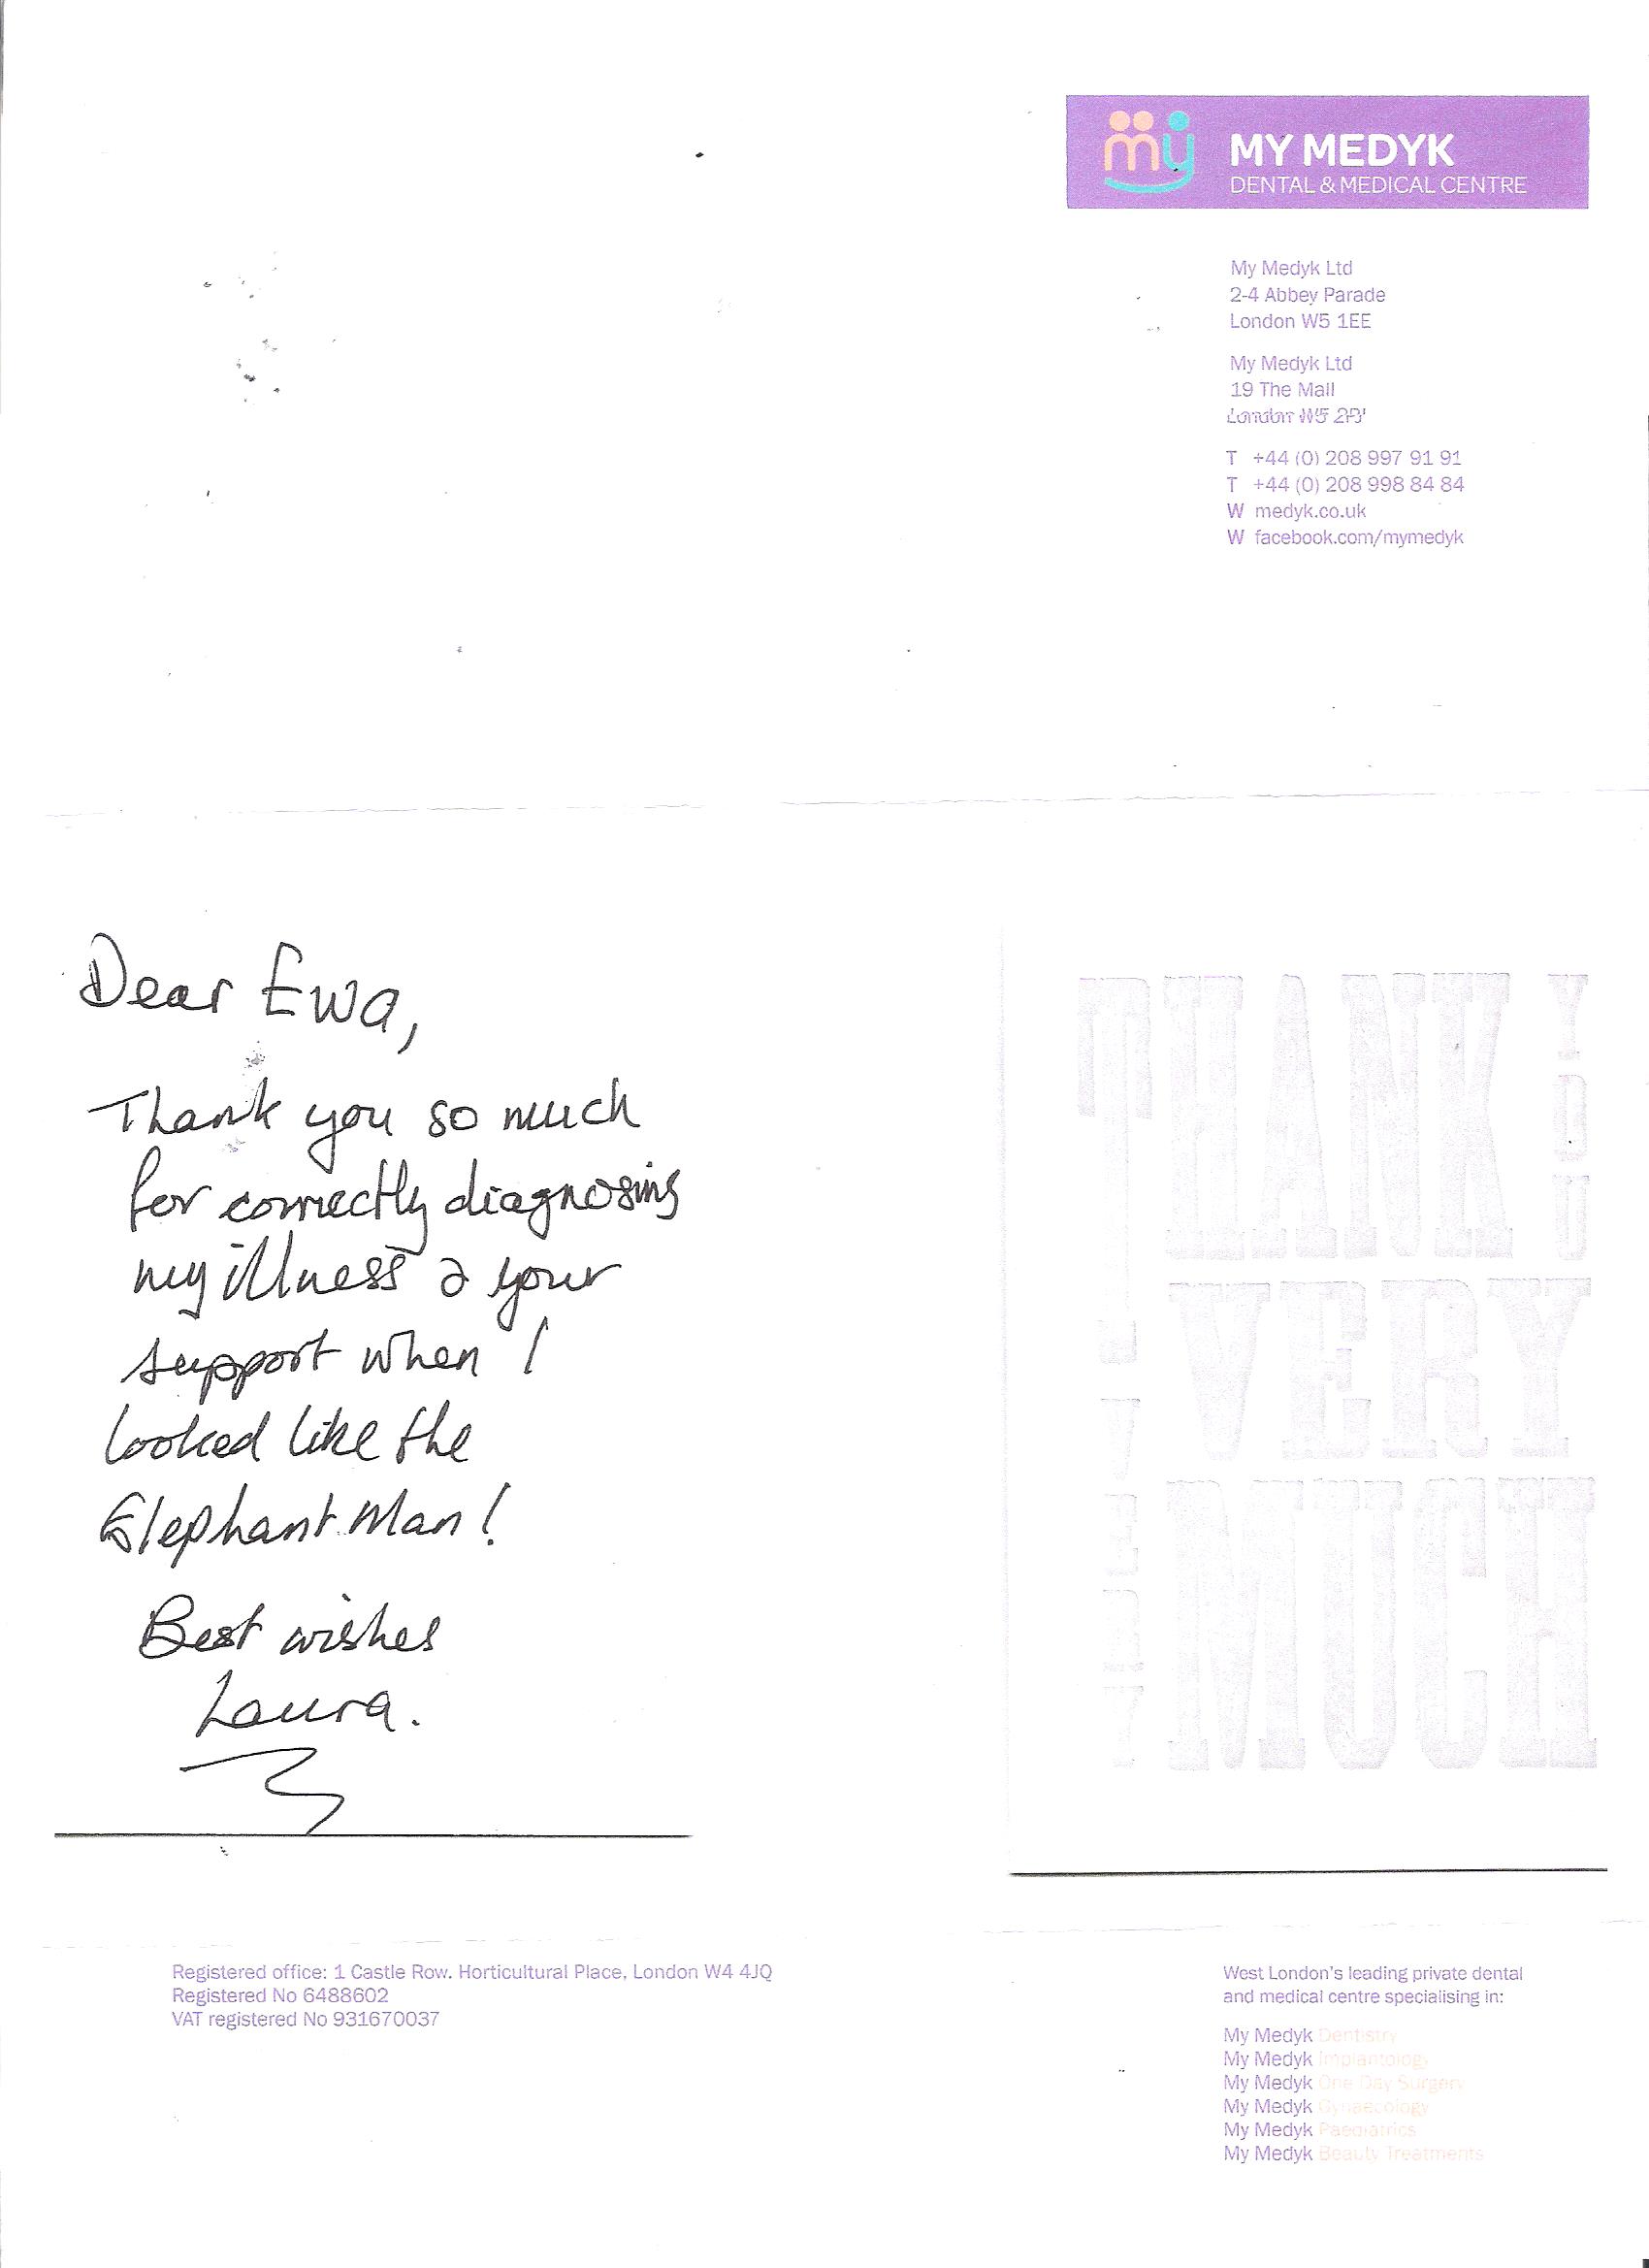 my MY MEDYK
DENTAL & MEDICAL CENTRE
My Medyk Ltd
2-4 Abbey Parade
London W5 1EE
My Medyk Ltd
19 The Mall
London W5
T +44 (0) 208 997 91 91
T +44 (0) 208 998 84 84
W medyk.co.uk
W facebook.com/mymedyk
Dear Ewa,
Thank you so much
for correctly diagnosing
my illness & your
support when I
looked like the
Elephant Man!
Best wishes
Laura.
THANK YOU
VERY
MUCH
Registered office: 1 Castle Row, Horticultural Place, London W4 4JQ
Registered No 6488602
VAT registered No 931670037
West London's leading private dental
and medical centre specialising in:
My Medyk Dentistry
My Medyk Implantology
My Medyk One Day Surgery
My Medyk Gynaecology
My Medyk Paediatrics
My Medyk Beauty Treatments